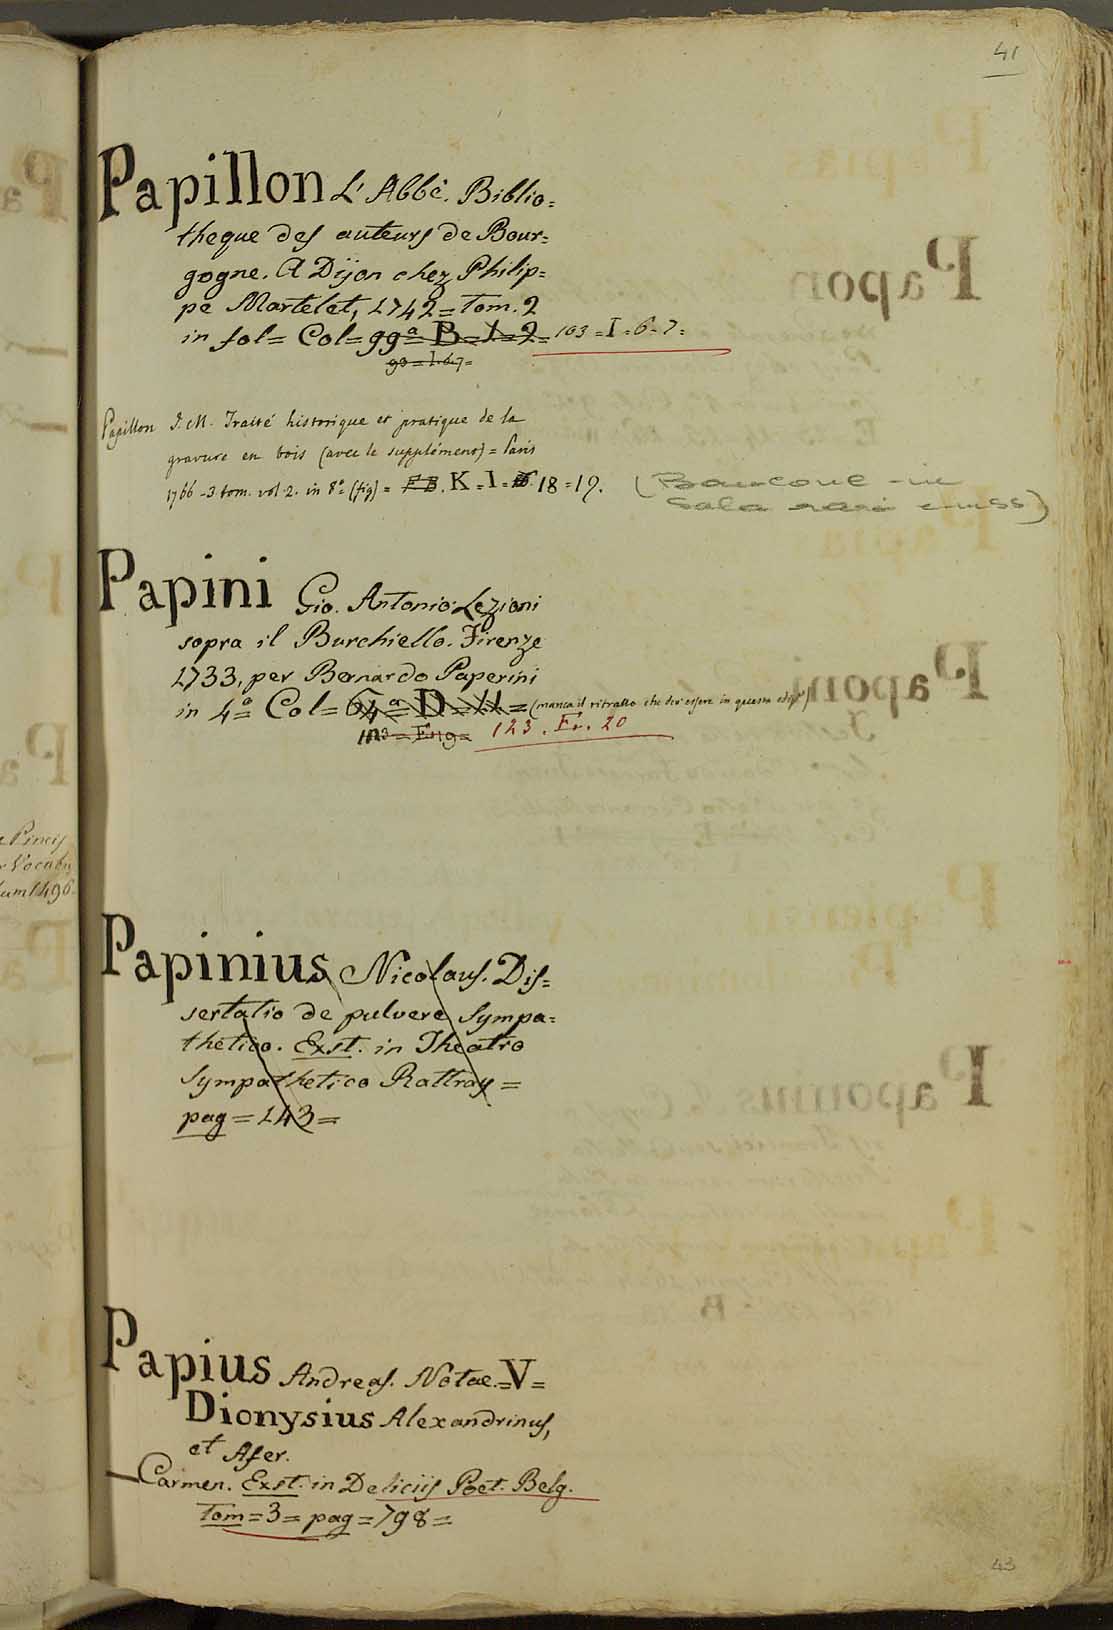 41
Papillon L'Abbè. Biblio=
theque des auteurs de Bour=
gogne. A Dijon chez Philip=
pe Martelet, 1742 = Tom. 2
in fol = Col = 99ª = B = 1 = 2 = 103 = I = 6 = 7 =
99 = I. 6. 7 =
Papillon J. M. Traité historique et pratique de la
gravure en bois (avec le supplément) = Paris
1766 - 3 tom. vol. 2. in 8º = (fig) = K = I = 18 = 19. (Bancone in
sala rari e mss)
Papini Gio. Antonio. Lezioni
sopra il Burchiello. Firenze
1733, per Bernardo Paperini
in 4º = Col = 64ª = D = 11 = (manca il ritratto che dev'essere in questa ediz.e)
123 = F. 19 = 123. Fr. 20
Papinius Nicolaus. Dis=
sertatio de pulvere Sympa=
thetico. Exst. in Theatro
Sympathetico Rattray =
pag = 143 =
Papius Andreas. Notae. = V =
Dionysius Alexandrinus,
et Afer.
— Carmen. Exst. in Deliciis Poet. Belg.
Tom = 3 = pag = 798 =
43